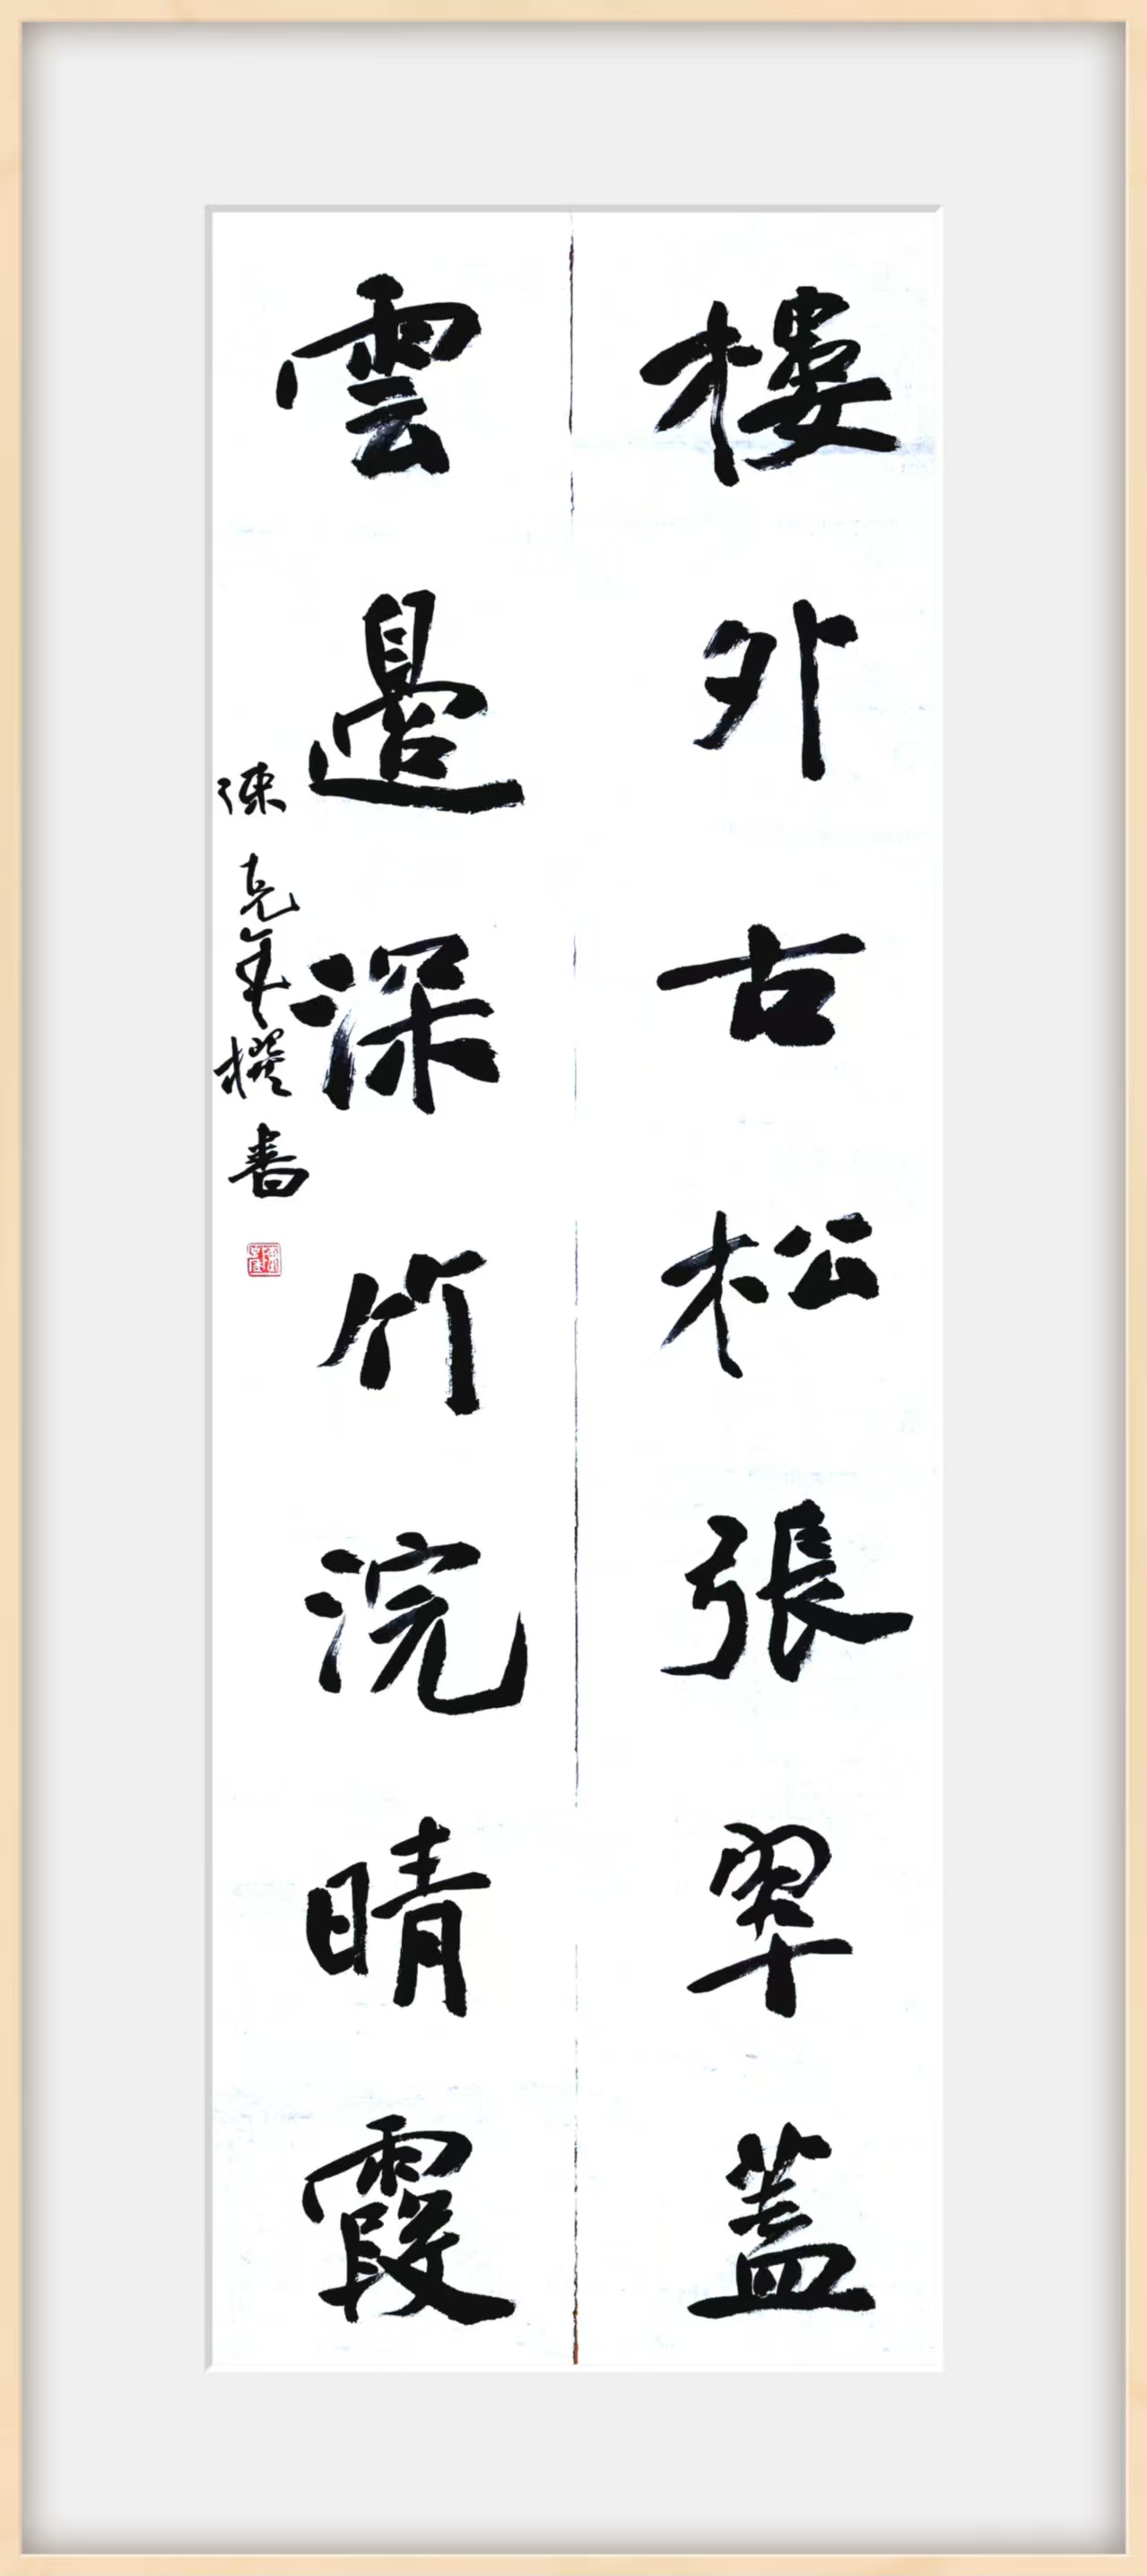 樓外古松張翠蓋
雲邊深竹浣晴霞
陳克年撰書